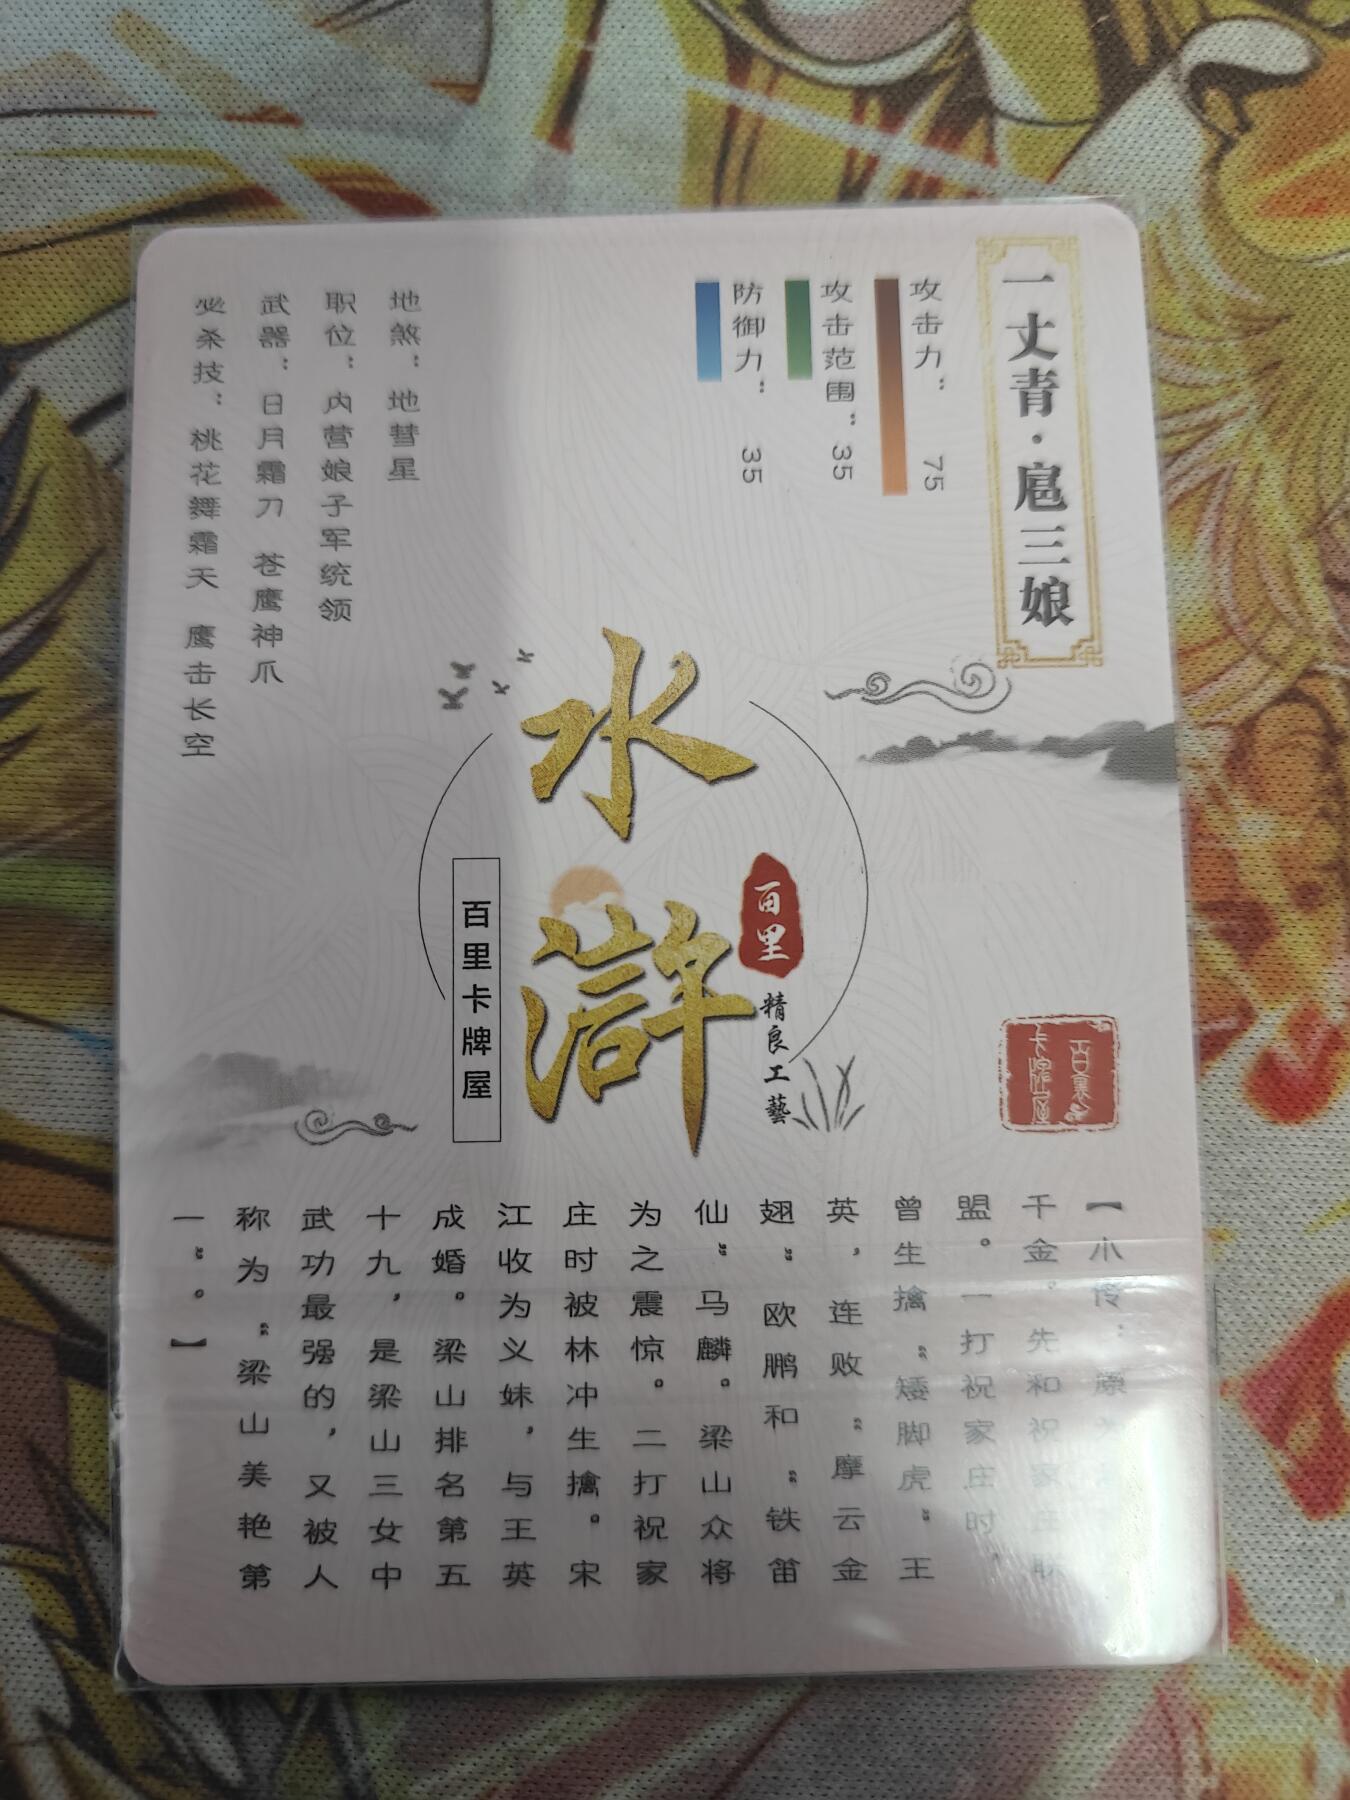 一丈青·扈三娘
攻击力： 75
攻击范围： 35
防御力： 35
地煞：地彗星
职位：内营娘子军统领
武器：日月霜刀 苍鹰神爪
必杀技：桃花舞霜天 鹰击长空
水浒
百里
精良工藝
百里卡牌屋
【小传：原为
千金，先和祝家庄联
盟。一打祝家庄时，
曾生擒“矮脚虎”王
英，连败“摩云金
翅”欧鹏和“铁笛
仙”马麟。梁山众将
为之震惊。二打祝家
庄时被林冲生擒。宋
江收为义妹，与王英
成婚。梁山排名第五
十九，是梁山三女中
武功最强的，又被人
称为“梁山美艳第
一”。】